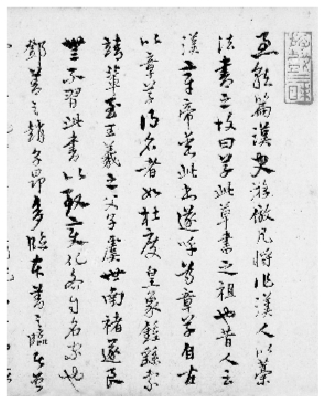 急就篇漢史游倣凡將作漢人以隸
法書之故曰草此草書之祖也昔人云
漢章帝愛此書遂呼為章草自古
以章草得名者如杜度皇象鍾繇索
靖輩至王羲之父子虞世南褚遂良
無不習此書以致變化各自名家也
鄧善之趙子昂多臨本善之臨